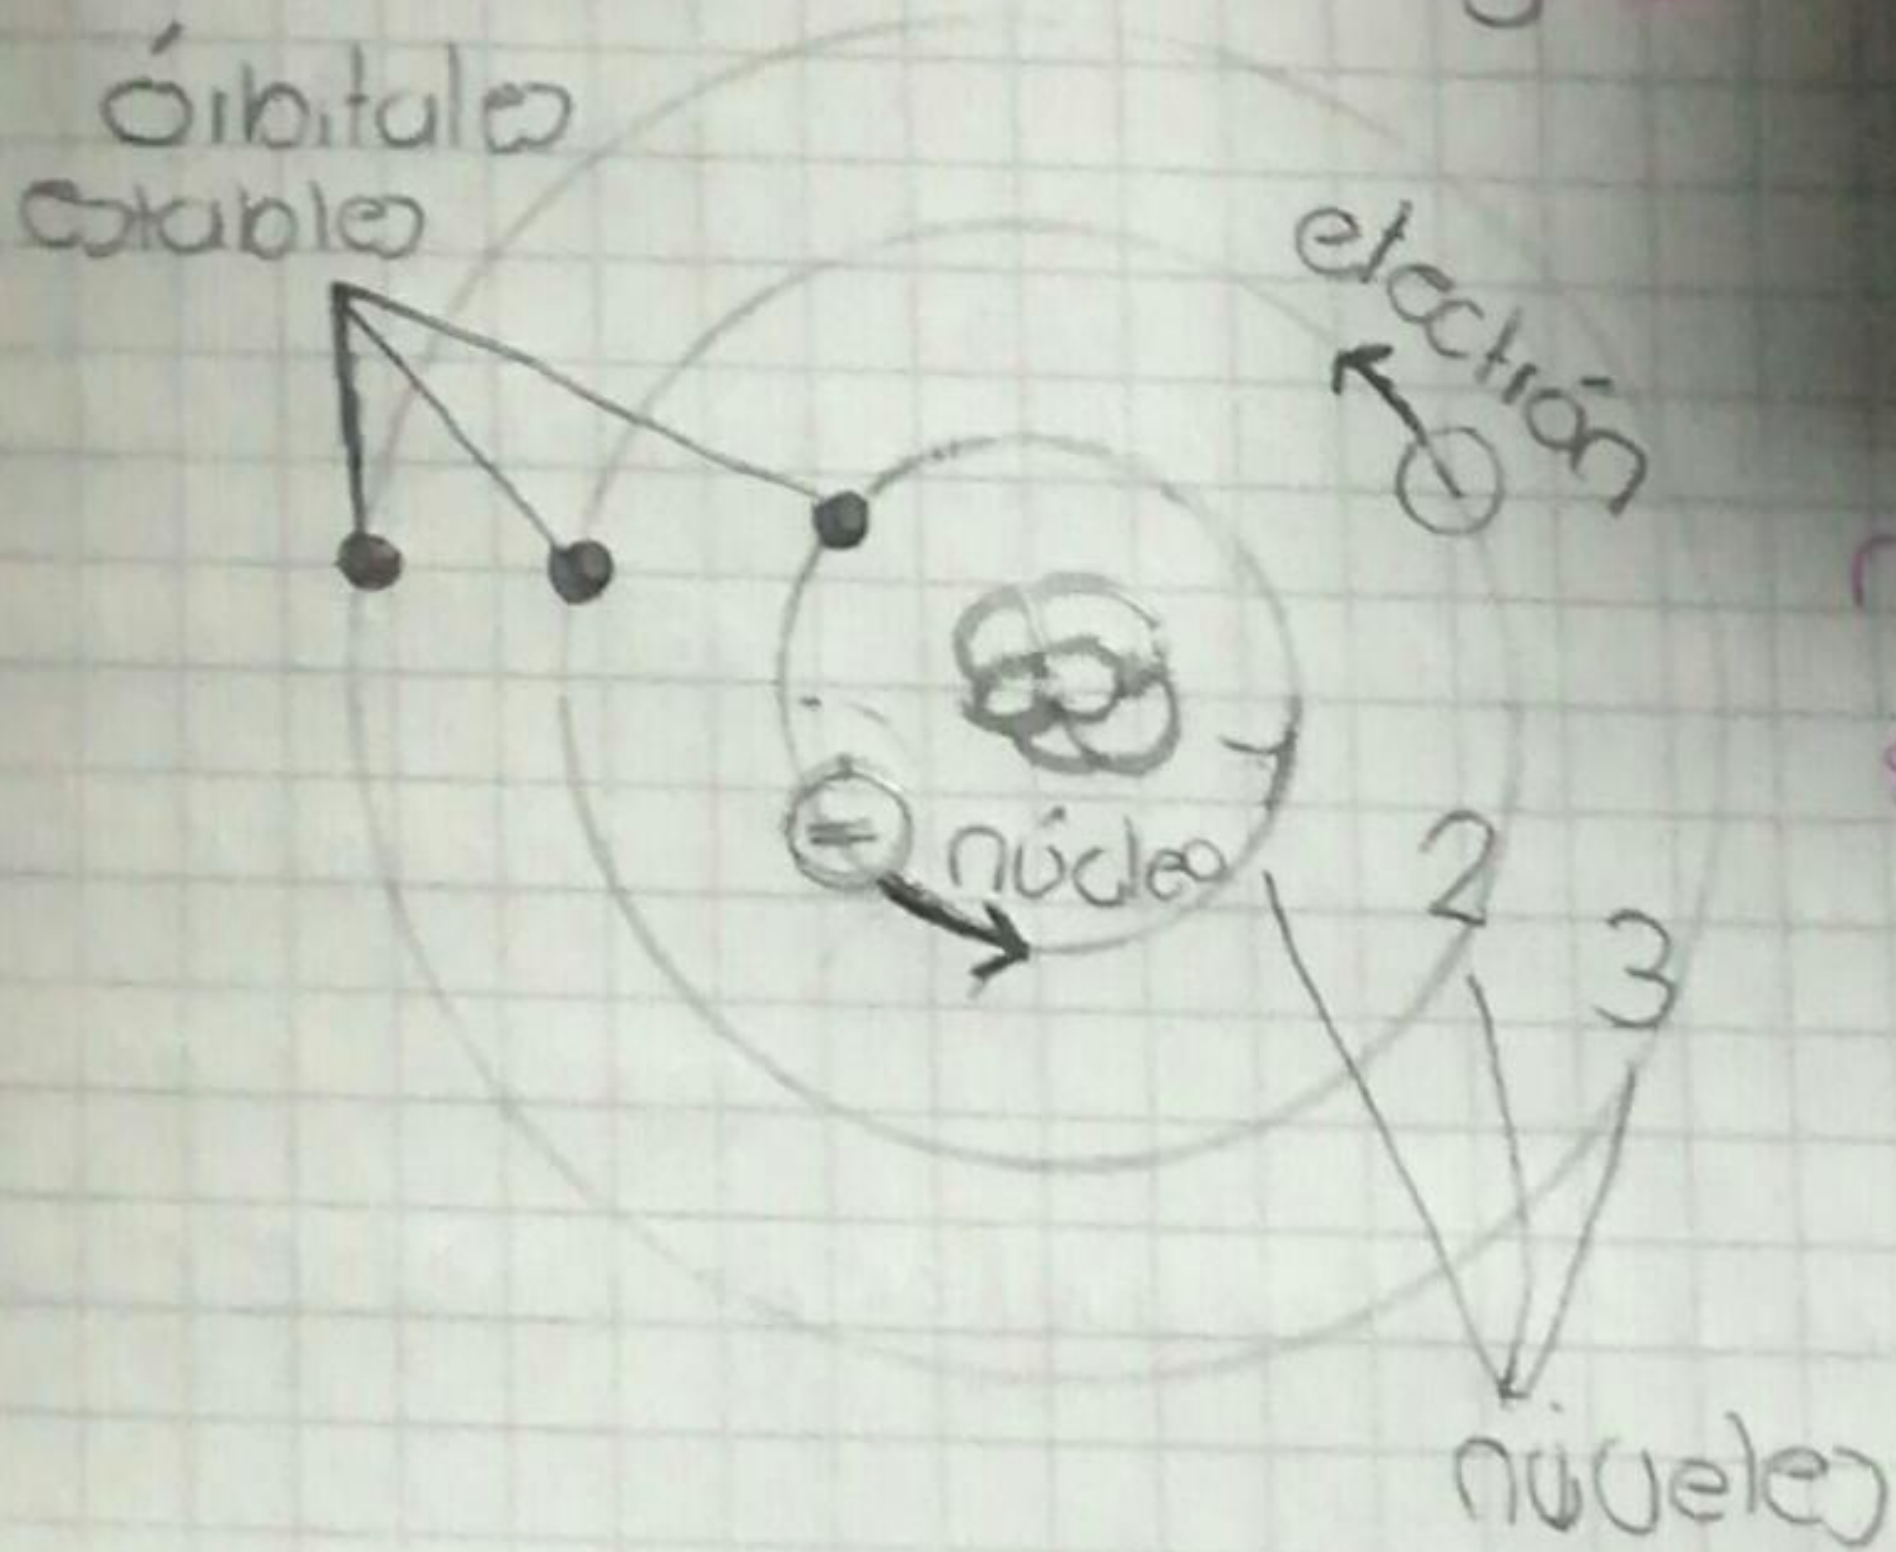 órbitales
estables
electrón
núcleo
1
2
3
niveles